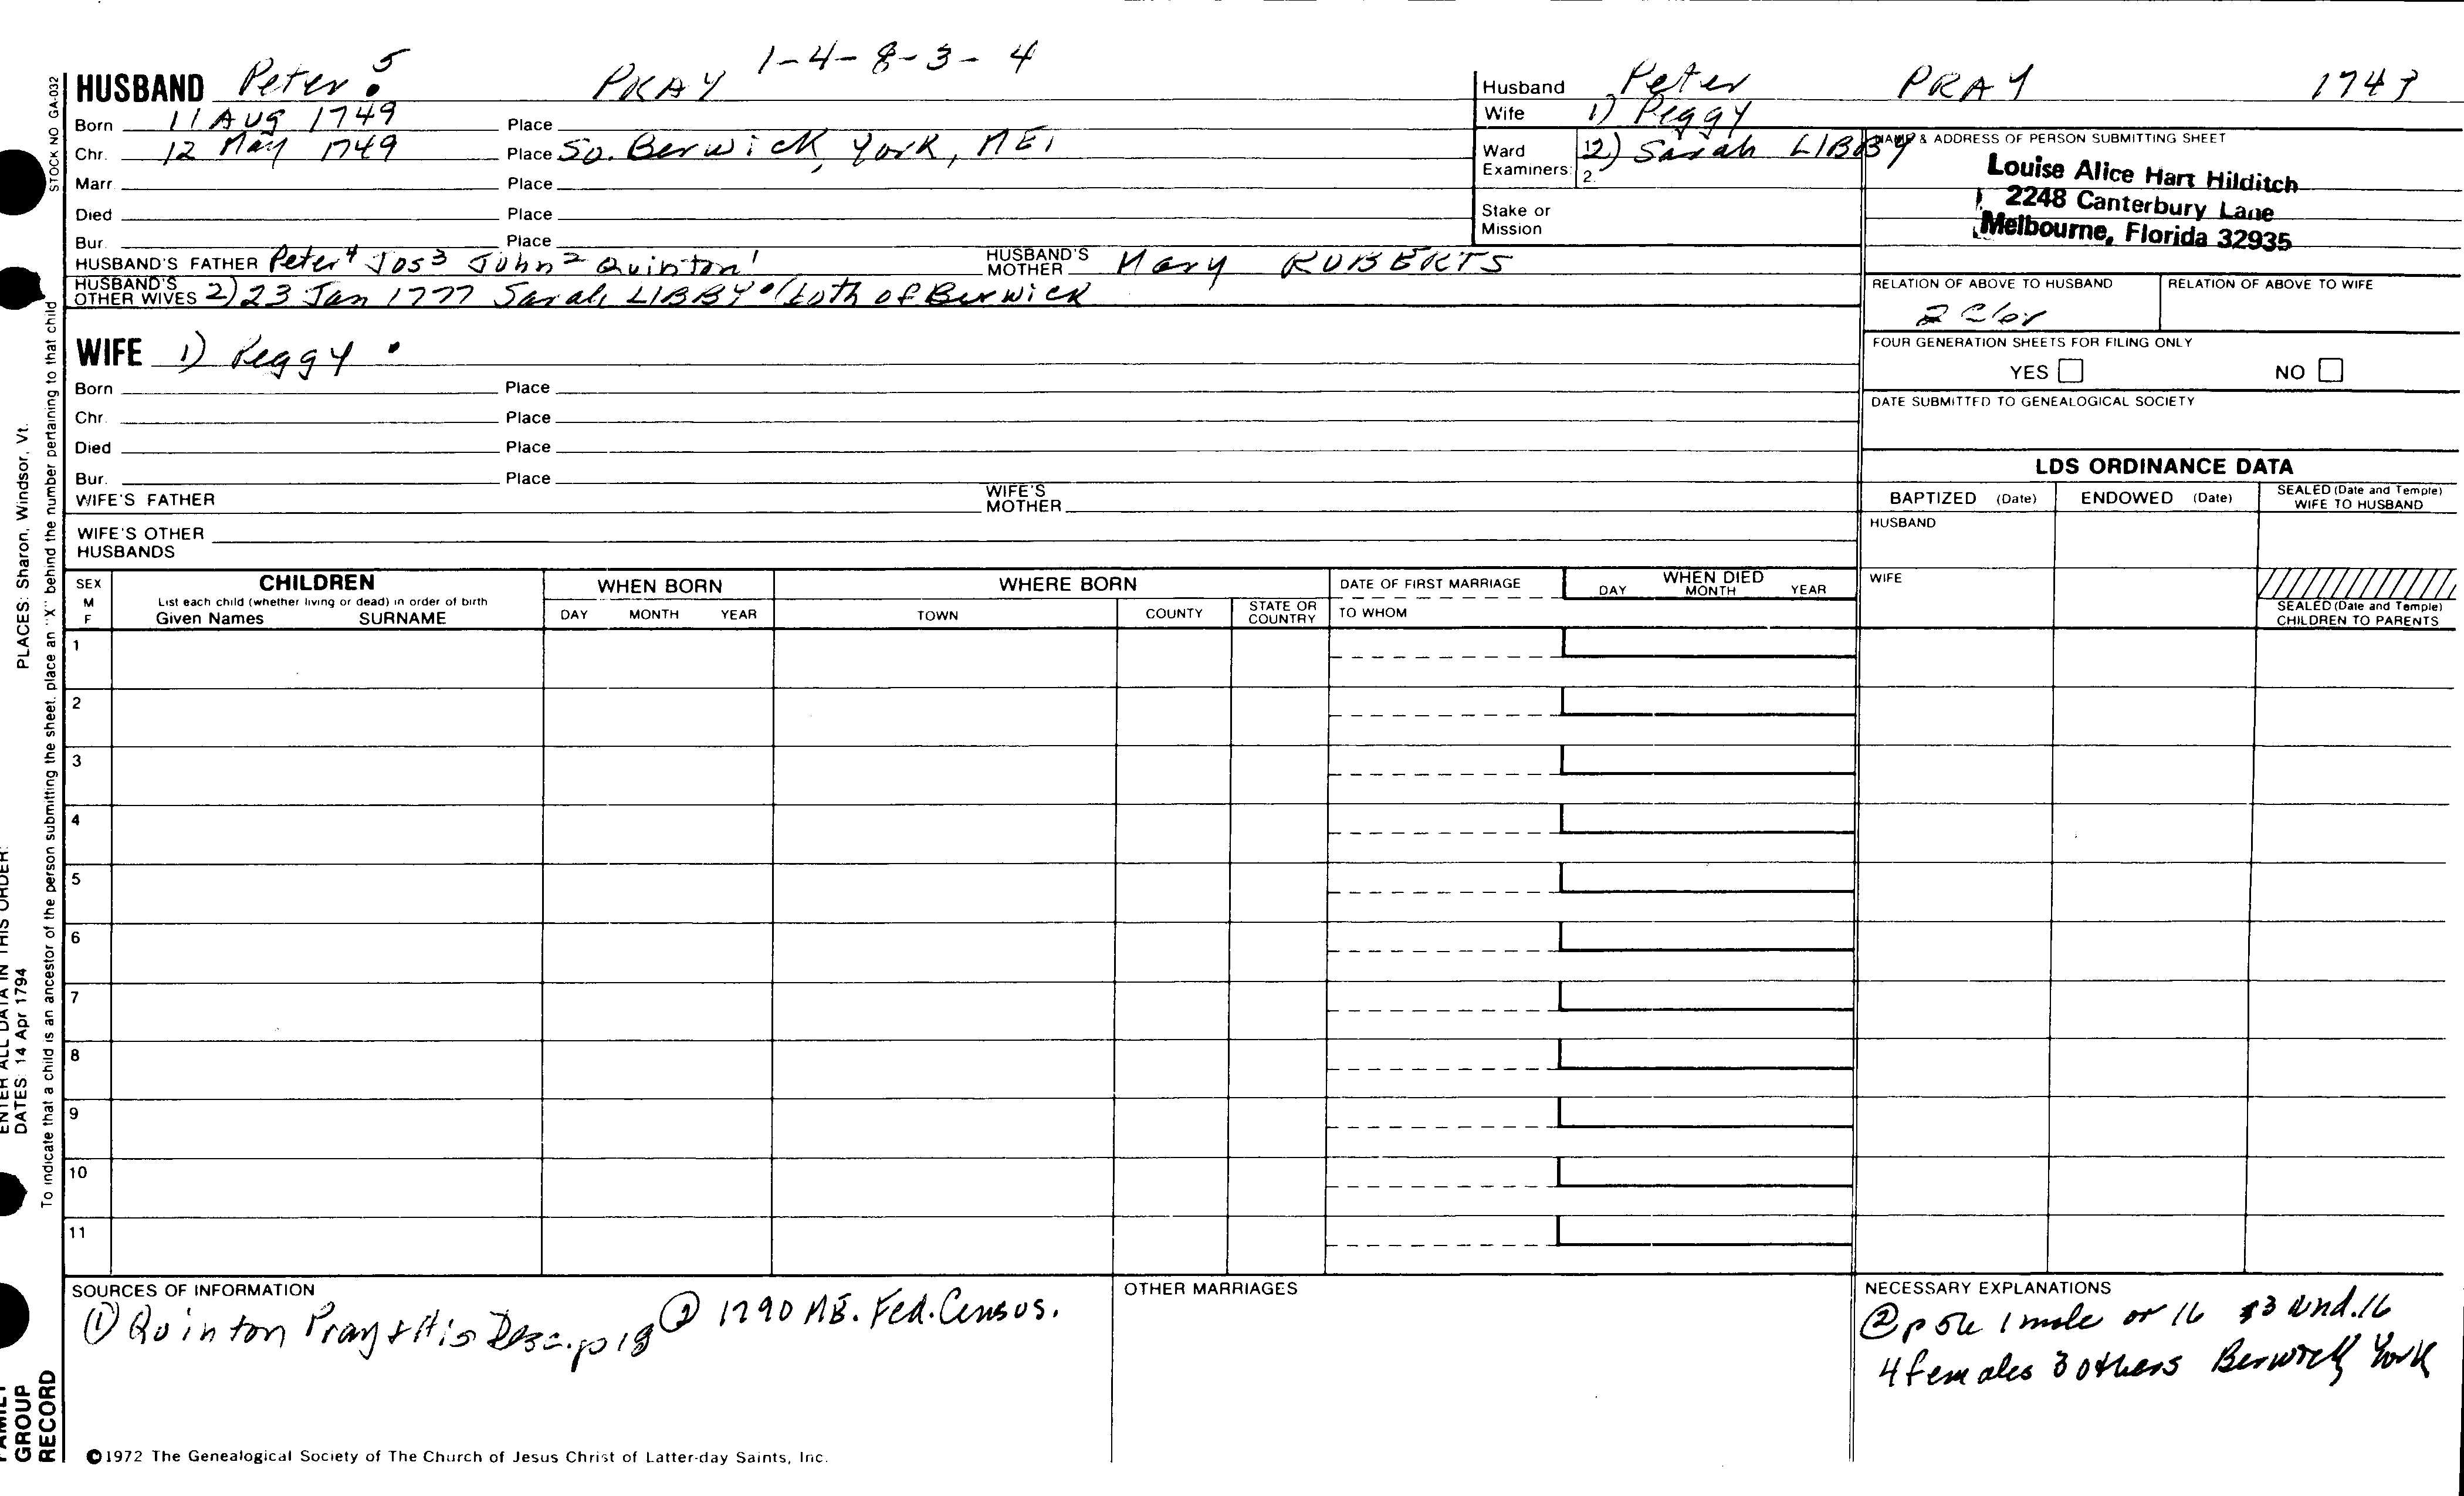 HUSBAND Peter 5 PRAY 1-4-8-3-4
Born 11 Aug 1749 Place
Chr. 12 May 1749 Place So. Berwick, York, ME,
Marr. Place
Died Place
Bur. Place
HUSBAND'S FATHER Peter4 Jos3 John2 Quinton1 HUSBAND'S MOTHER Mary ROBERTS
HUSBAND'S OTHER WIVES 2) 23 Jan 1777 Sarah LIBBY (both of Berwick
WIFE 1) Peggy
Born Place
Chr. Place
Died Place
Bur. Place
WIFE'S FATHER WIFE'S MOTHER
WIFE'S OTHER HUSBANDS
Husband Peter PRAY
Wife 1) Peggy
Ward Examiners: 1. 2) Sarah LIBBY
2.
Stake or Mission
NAME & ADDRESS OF PERSON SUBMITTING SHEET
Louise Alice Hart Hilditch
2248 Canterbury Lane
Melbourne, Florida 32935
RELATION OF ABOVE TO HUSBAND RELATION OF ABOVE TO WIFE
FOUR GENERATION SHEETS FOR FILING ONLY
YES NO
DATE SUBMITTED TO GENEALOGICAL SOCIETY
LDS ORDINANCE DATA
BAPTIZED (Date) ENDOWED (Date) SEALED (Date and Temple) WIFE TO HUSBAND
HUSBAND
WIFE
SEALED (Date and Temple) CHILDREN TO PARENTS
SEX M F
CHILDREN
List each child (whether living or dead) in order of birth
Given Names SURNAME
WHEN BORN
DAY MONTH YEAR
WHERE BORN
TOWN COUNTY STATE OR COUNTRY
DATE OF FIRST MARRIAGE
TO WHOM
WHEN DIED
DAY MONTH YEAR
1
2
3
4
5
6
7
8
9
10
11
SOURCES OF INFORMATION
① Quinton Pray & His Desc. p 18 ② 1790 ME. Fed. Census.
OTHER MARRIAGES
NECESSARY EXPLANATIONS
② p 1 male or 16 3 und. 16
4 females 3 others Berwick York
©1972 The Genealogical Society of The Church of Jesus Christ of Latter-day Saints, Inc.
STOCK NO GA-032
To indicate that a child is an ancestor of the person submitting the sheet, place an "X" behind the number pertaining to that child
PLACES: Sharon, Windsor, Vt.
ENTER ALL DATA IN THIS ORDER:
DATES: 14 Apr 1794
FAMILY
GROUP
RECORD